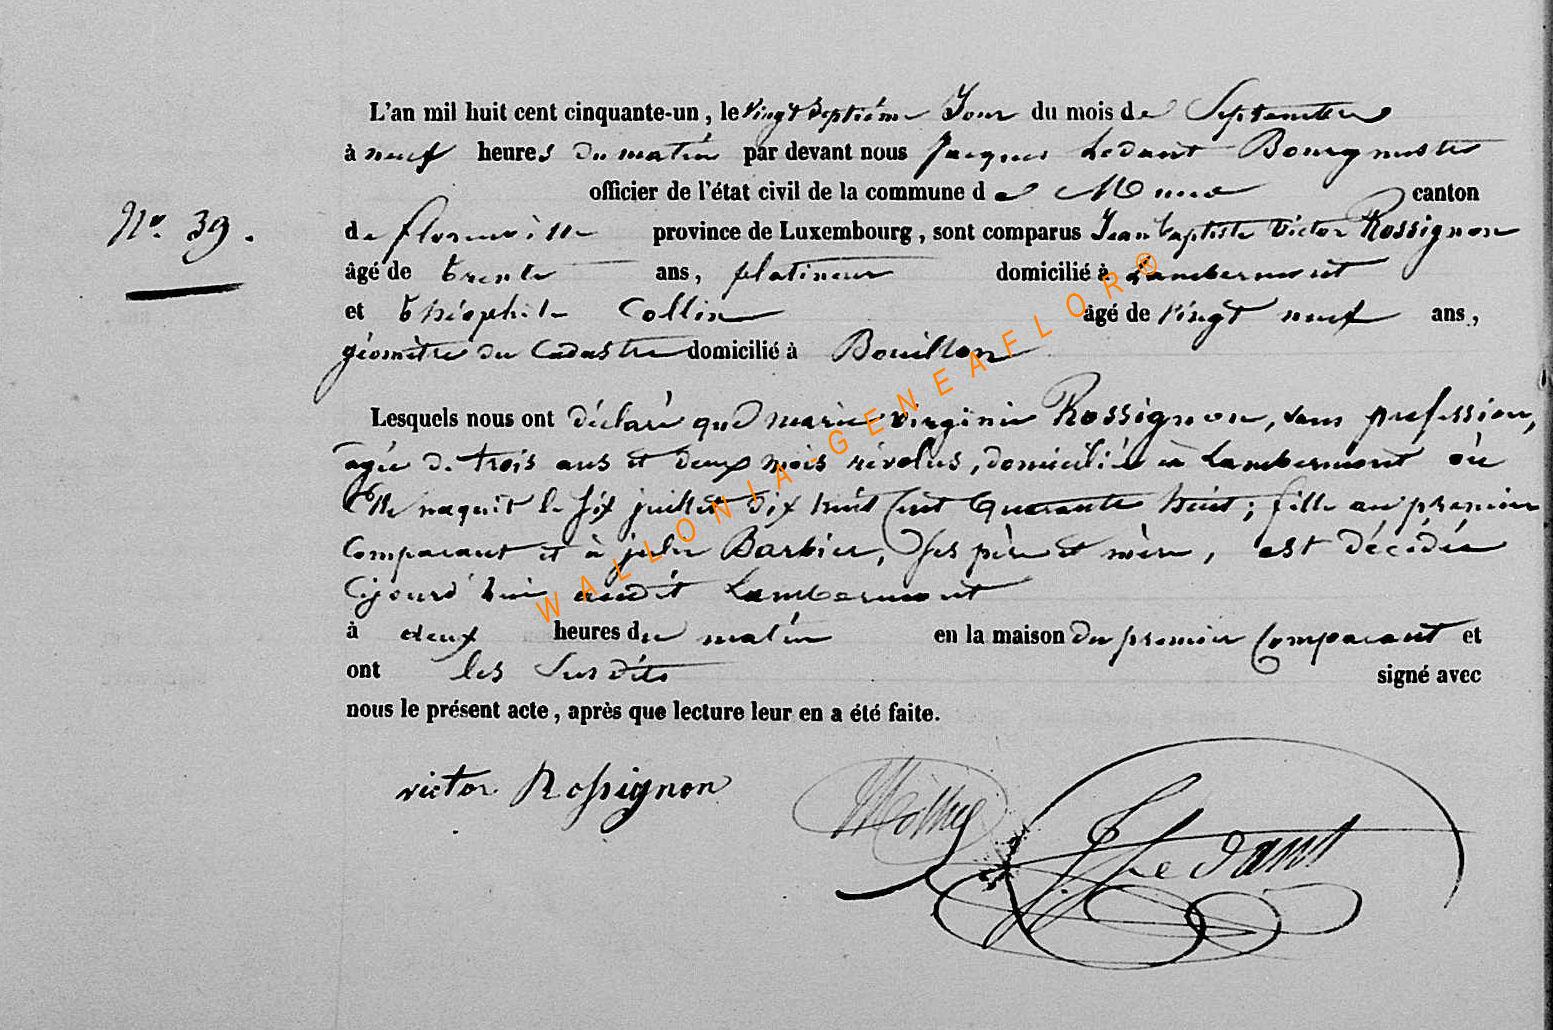 L'an mil huit cent cinquante-un, le vingt septième Jour du mois de Septembre
à neuf heures du matin par devant nous Jacques Ledant Bourgmestre
officier de l'état civil de la commune de Muno canton
N° 39.
de florenville province de Luxembourg, sont comparus Jean baptiste Victor Rossignon
âgé de trente ans, platineur domicilié à Lambermont
et théophile Collin âgé de vingt neuf ans,
géomètre du Cadastre domicilié à Bouillon
Lesquels nous ont déclaré que marie virginie Rossignon, sans profession,
agée de trois ans et deux mois révolus, domiciliée à Lambermont où
Elle naquit le six juillet dix huit Cent Quarante huit; fille au premier
Comparant et à julie Barbier, ses père et mère, est décédée
Cejourd'hui audit Lambermont
à deux heures du matin en la maison du premier Comparant et
ont les Susdits signé avec
nous le présent acte, après que lecture leur en a été faite.
victor Rossignon
J. Ledant
WALLONIA-GENEAFLOR®